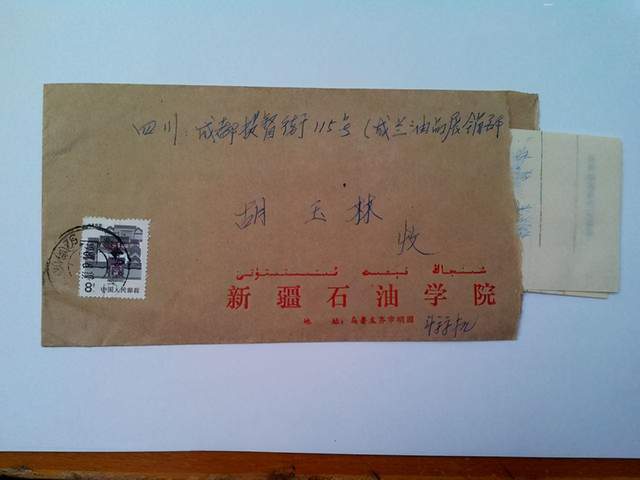 四川 成都提督街115号(成兰油品展销部
胡玉林
收
شىنجاڭ نېفىت ئىنستىتۇتى
新疆石油学院
地 址:乌鲁木齐市明园
8分 中国人民邮政